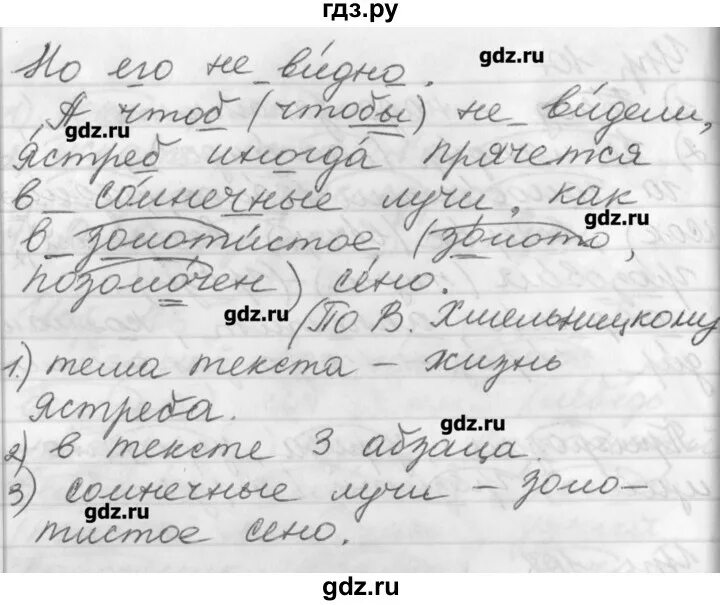 гдз.ру
gdz.ru
Но его не видно.
А чтоб (чтобы) не видели,
gdz.ru
ястреб иногда прячется
в солнечные лучи, как
gdz.ru
в золотистое (золото,
позолочен) сено.
gdz.ru
(По В. Хмельницкому
1.) тема текста – жизнь
ястреба.
gdz.ru
2) в тексте 3 абзаца.
3) солнечные лучи – золо-
gdz.ru
тистое сено.
gdz.ru